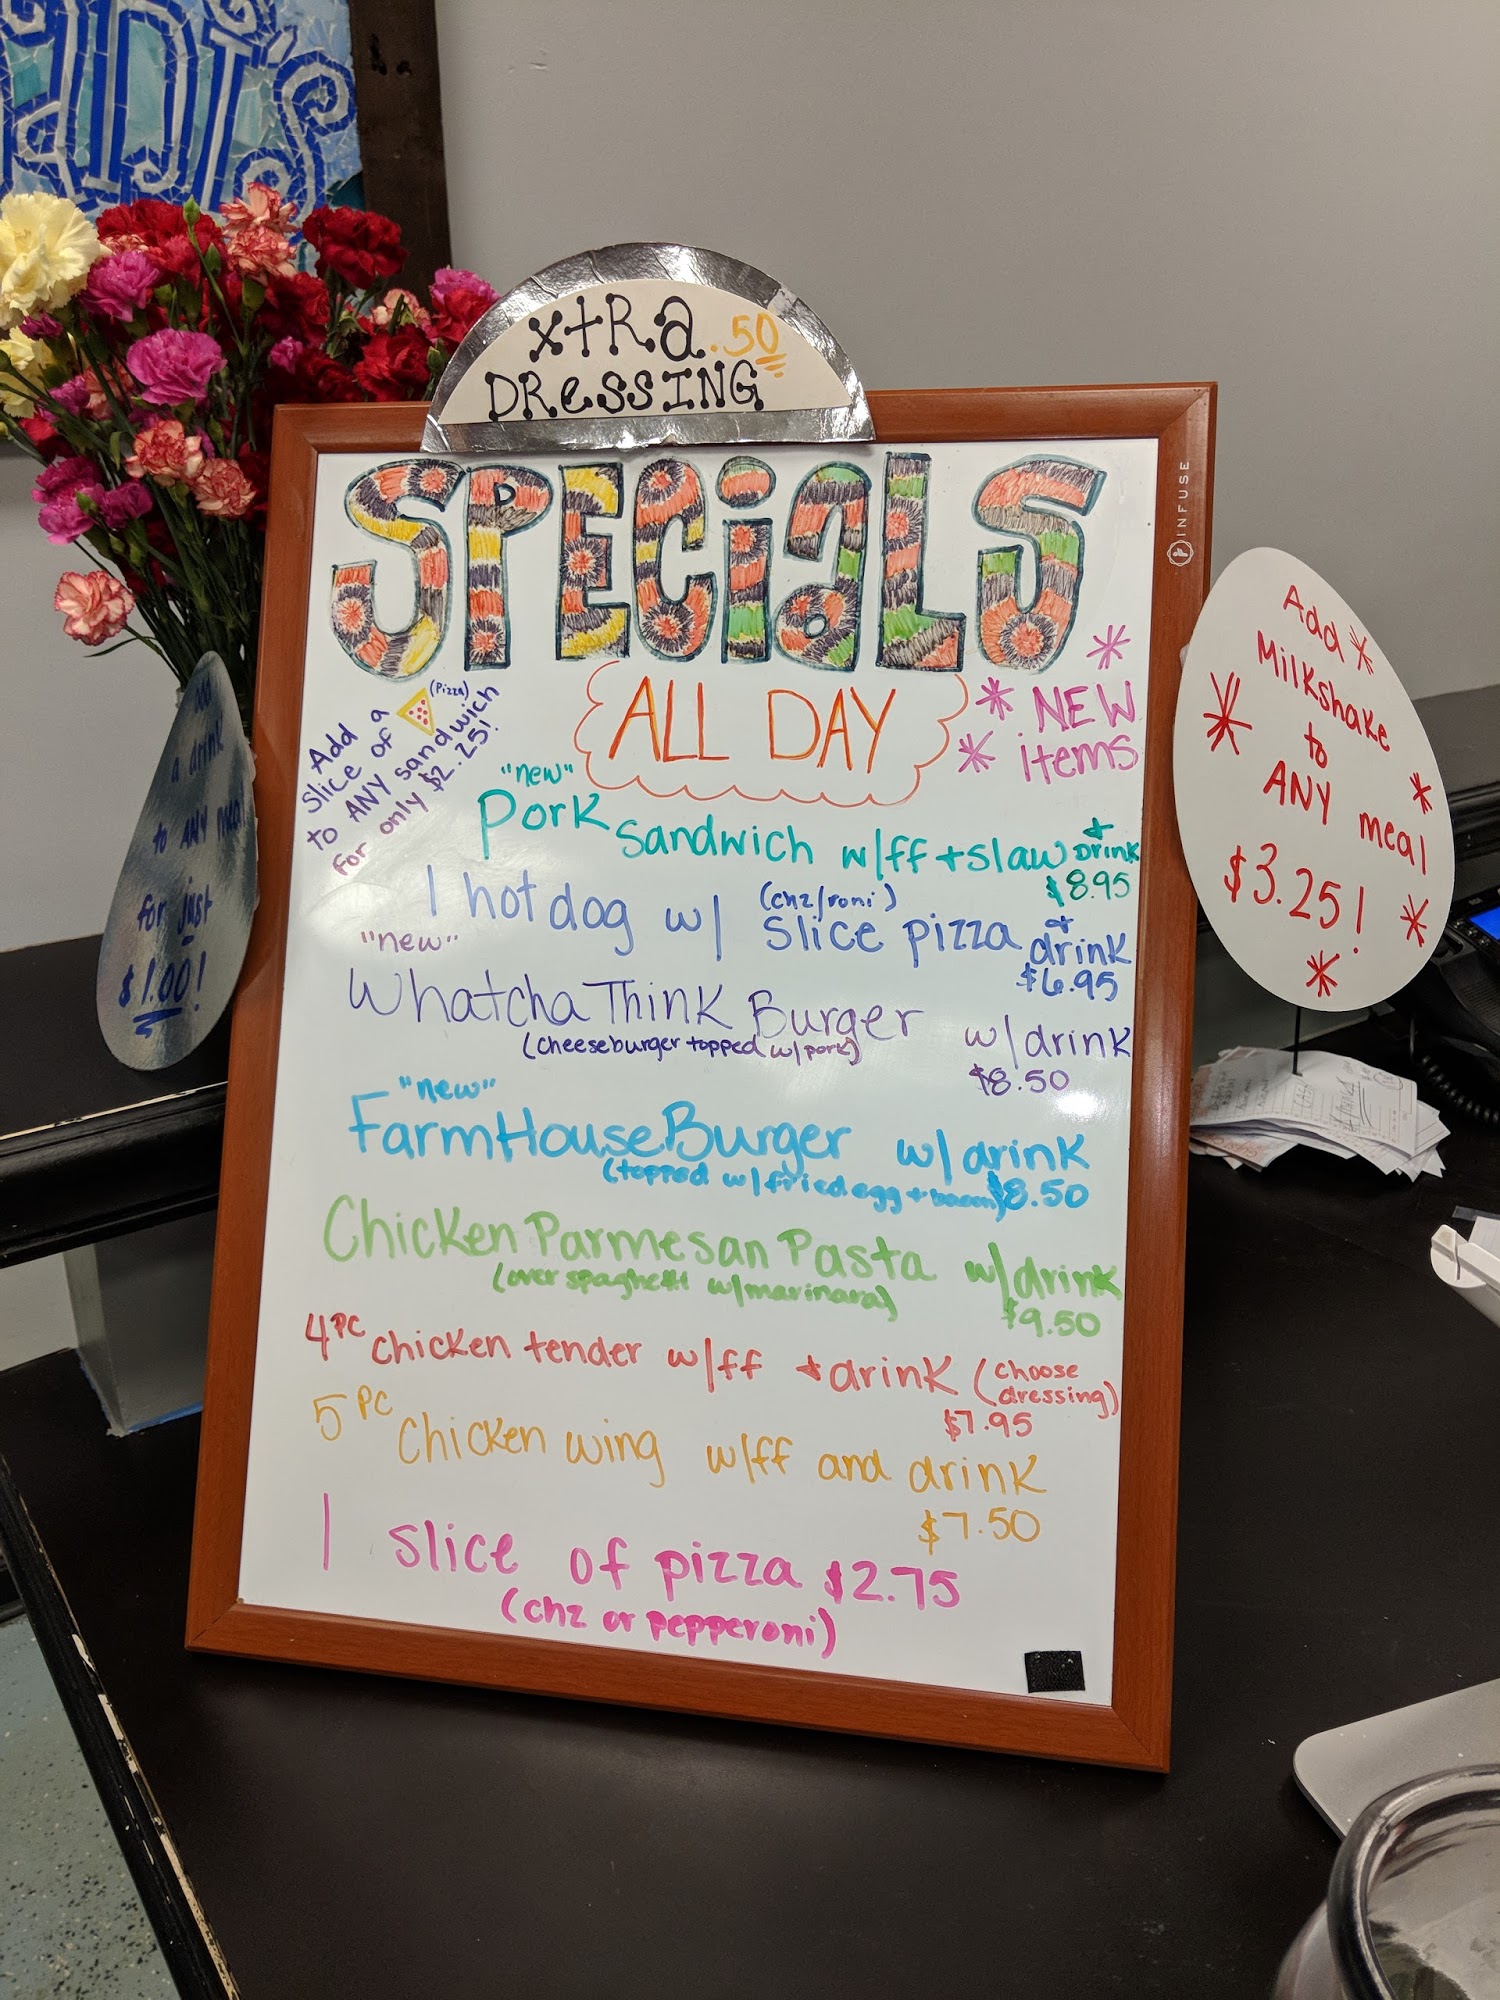 ADi's
xtRa .50
DRessING
SPECiaLS
INFUSE
ALL DAY
* NEW
* items
Add
slice of a (Pizza)
to ANY sandwich
for only $2.25!
"new"
Pork Sandwich w/ff + slaw + Drink
$8.95
1 hot dog w/ (chz/roni) slice pizza + drink
$6.95
"new"
Whatcha Think Burger w/drink
(cheeseburger topped w/pork)
$8.50
"new"
FarmHouse Burger w/drink
(topped w/fried egg + bacon) $8.50
Chicken Parmesan Pasta w/drink
(over spaghetti w/marinara)
$9.50
4 PC chicken tender w/ff + drink (choose dressing)
$7.95
5 PC Chicken wing w/ff and drink
$7.50
1 slice of pizza $2.75
(chz or pepperoni)
a drink
to ANY meal
for just
$1.00!
Add
Milkshake
to
ANY meal
$3.25!